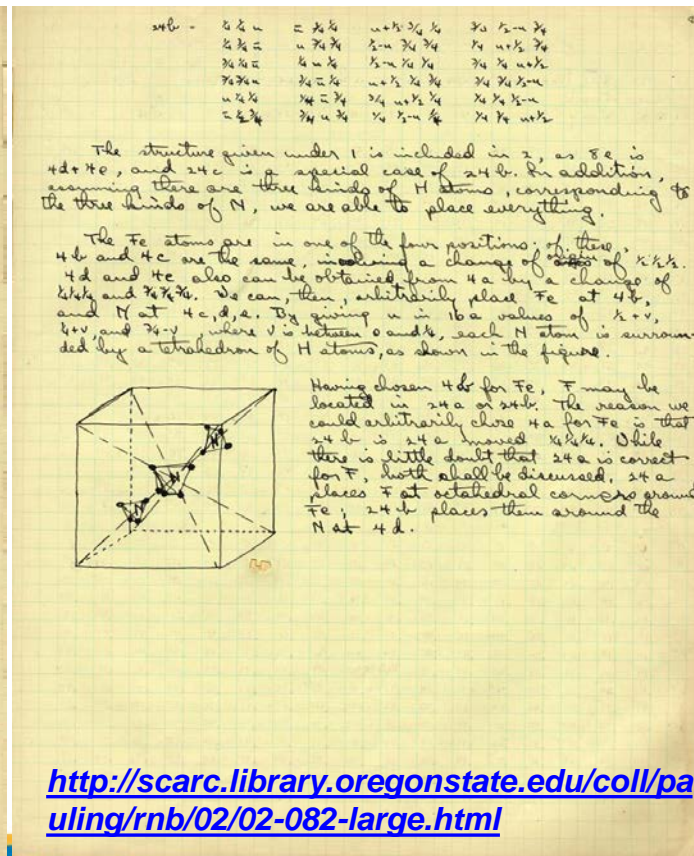 24b - ¼ ¼ u ū ¾ ¼ u+½ ¾ ¼ ¾ ½-u ¾
¼ ¾ ū u ¾ ¾ ½-u ¾ ¾ ¼ u+½ ¾
¾ ¼ ū ¼ u ¼ ½-u ¼ ¼ ¾ ¼ u+½
¾ ¾ u ¾ ū ¼ u+½ ¼ ¾ ¾ ¾ ½-u
u ¼ ¼ ¼ ū ¾ ¾ u+½ ¼ ¼ ¼ ½-u
¾ u ¾ ¼ ½-u ¼ ¼ ¾ u+½
The structure given under 1 is included in 2, as 8e is
4d+4e, and 24c is a special case of 24b. In addition,
assuming there are three kinds of H atoms, corresponding to
the three kinds of N, we are able to place everything.
The Fe atoms are in one of the four positions; of these,
4b and 4c are the same, involving a change of origin of ½ ½ ½.
4d and 4e also can be obtained from 4a by a change of
¼ ¼ ¼ and ¾ ¾ ¾. We can, then, arbitrarily place Fe at 4b,
and N at 4c, d, e. By giving u in 16a values of ½+v,
¼+v, and ¾-v, where v is between 0 and ¼, each N atom is surroun-
ded by a tetrahedron of H atoms, as shown in the figure.
Having chosen 4b for Fe, F may be
located in 24a or 24b. The reason we
could arbitrarily chose 4a for Fe is that
24b is 24a moved ¼ ¼ ¼. While
there is little doubt that 24a is correct
for F, both shall be discussed. 24a
places F at octahedral corners around
Fe; 24b places them around the
N at 4d.
N
N
N
http://scarc.library.oregonstate.edu/coll/pa
uling/rnb/02/02-082-large.html